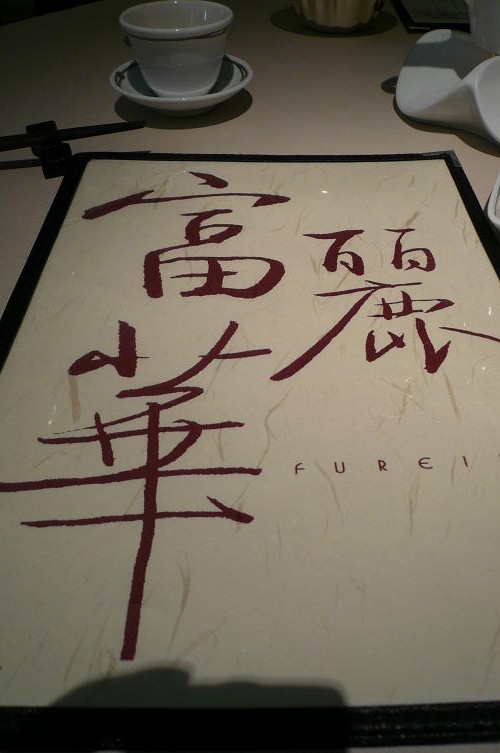 富
麗
華
FUREI